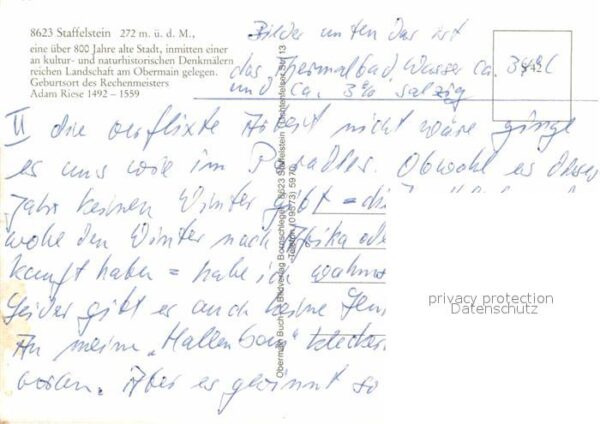 8623 Staffelstein 272 m. ü. d. M.,
eine über 800 Jahre alte Stadt, inmitten einer
an kultur- und naturhistorischen Denkmälern
reichen Landschaft am Obermain gelegen.
Geburtsort des Rechenmeisters
Adam Riese 1492 – 1559
Bilder unten das ist
das Thermalbad, Wasser ca. 34°C
und ca. 3% salzig
942
II die verflixte Arbeit nicht wäre ginge
es uns wie im Paradies. Obwohl es dieses
Jahr keinen Winter gibt = die
wohl den Winter nach Afrika
kauft haben = habe ich
Leider gibt es auch keine
An meine „Hallenbau"
Aber es gewinnt so
Obermain Buch- und Bildverlag Bornschlegel 8623 Staffelstein
Telefon (09573) 5970
privacy protection
Datenschutz